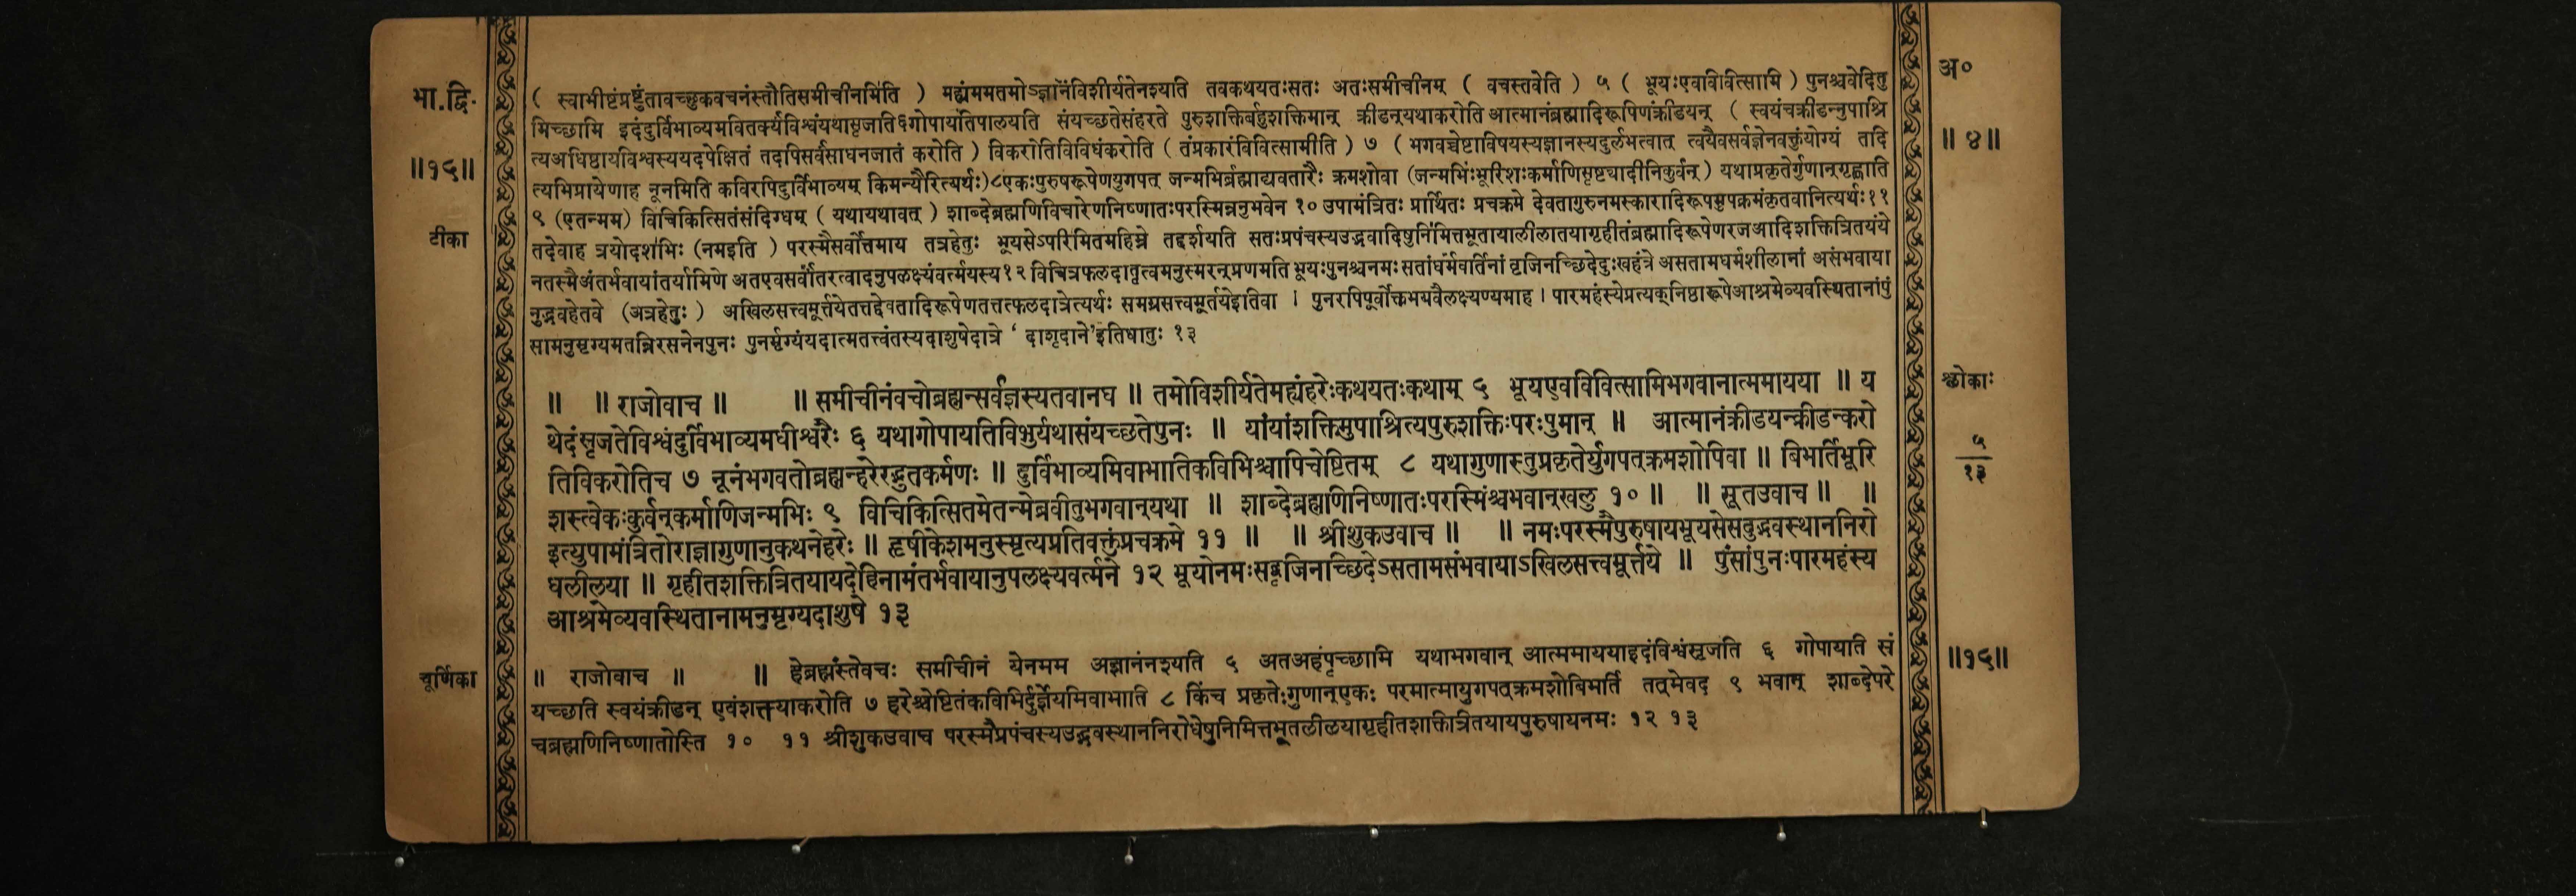 भा.द्वि.
॥१५॥
टीका
( स्वाभीष्टंप्रष्टुंतावच्छुकवचनंस्तौतिसमीचीनमिति ) मह्यंममतमोऽज्ञानंविशीर्यतेनश्यति तवकथयतःसतः अतःसमीचीनम् ( वचस्तवेति ) ५ ( भूयःएवविवित्सामि ) पुनश्चवेदितु
मिच्छामि इदंदुर्विभाव्यमवितर्क्यंविश्वंयथासृजति६गोपायतिपालयति संयच्छतेसंहरते पुरुशक्तिर्बहुशक्तिमान् क्रीडन्यथाकरोति आत्मानंब्रह्मादिरूपिणंक्रीडयन् ( स्वयंचक्रीडन्नुपाश्रि
त्यअधिष्ठायविश्वस्ययदपेक्षितं तदपिसर्वसाधनजातं करोति ) विकरोतिविविधंकरोति ( तंप्रकारंविवित्सामीति ) ७ ( भगवच्चेष्टाविषयस्यज्ञानस्यदुर्लभत्वात् त्वयैवसर्वज्ञेनवक्तुंयोग्यं तदि
त्यभिप्रायेणाह नूनमिति कविरपिदुर्विभाव्यम् किमन्यैरित्यर्थः)८एकःपुरुषरूपेणयुगपत् जन्मभिर्ब्रह्माद्यवतारैः क्रमशोवा (जन्मभिःभूरिशःकर्माणिसृष्ट्यादीनिकुर्वन् ) यथाप्रकृतेर्गुणान्गृह्णाति
९ (एतन्मम) विचिकित्सितंसंदिग्धम् ( यथायथावत् ) शाब्देब्रह्मणिविचारेणनिष्णातःपरस्मिन्ननुभवेन १० उपामंत्रितः प्रार्थितः प्रचक्रमे देवतागुरुनमस्कारादिरूपमुपक्रमंकृतवानित्यर्थः११
तदेवाह त्रयोदशभिः (नमइति ) परस्मैसर्वोत्तमाय तत्रहेतुः भूयसेऽपरिमितमहिम्ने तद्दर्शयति सतःप्रपंचस्यउद्भवादिषुनिमित्तभूतायालीलातयागृहीतंब्रह्मादिरूपेणरजआदिशक्तित्रितयंये
नतस्मैअंतर्भवायांतर्यामिणे अतएवसर्वांतरत्वादनुपलक्ष्यंवर्त्मयस्य१२ विचित्रफलदातृत्वमनुस्मरन्प्रणमति भूयःपुनश्चनमः सतांधर्मवर्तिनां वृजिनच्छिदेदुःखहंत्रे असतामधर्मशीलानां असंभवाया
नुद्भवहेतवे (अत्रहेतुः ) अखिलसत्त्वमूर्तयेतत्तद्देवतादिरूपेणतत्तत्फलदात्रेत्यर्थः समग्रसत्त्वमूर्तयेइतिवा । पुनरपिपूर्वोक्तमयवैलक्ष्यण्यमाह । पारमहंस्येप्रत्यक्‌निष्ठारूपेआश्रमेव्यवस्थितानांपुं
सामनुमृग्यमतन्निरसनेनपुनः पुनर्मृग्यंयदात्मतत्त्वंतस्यदाशुषेदात्रे ‘ दाशृदाने’इतिधातुः १३
॥ ॥ राजोवाच ॥ ॥ समीचीनंवचोब्रह्मन्सर्वज्ञस्यतवानघ ॥ तमोविशीर्यतेमह्यंहरेःकथयतःकथाम् ५ भूयएवविवित्सामिभगवानात्ममायया ॥ य
थेदंसृजतेविश्वंदुर्विभाव्यमधीश्वरैः ६ यथागोपायतिविभुर्यथासंयच्छतेपुनः ॥ यांयांशक्तिमुपाश्रित्यपुरुशक्तिःपरःपुमान् ॥ आत्मानंक्रीडयन्क्रीडन्करो
तिविकरोतिच ७ नूनंभगवतोब्रह्मन्हरेरद्भुतकर्मणः ॥ दुर्विभाव्यमिवाभातिकविभिश्चापिचेष्टितम् ८ यथागुणास्तुप्रकृतेर्युगपत्क्रमशोपिवा ॥ बिभर्तिभूरि
शस्त्वेकःकुर्वन्कर्माणिजन्मभिः ९ विचिकित्सितमेतन्मेब्रवीतुभगवान्यथा ॥ शाब्देब्रह्मणिनिष्णातःपरस्मिंश्चभवान्खलु १० ॥ ॥ सूतउवाच ॥ ॥
इत्युपामंत्रितोराज्ञागुणानुकथनेहरेः ॥ हृषीकेशमनुस्मृत्यप्रतिवक्तुंप्रचक्रमे ११ ॥ ॥ श्रीशुकउवाच ॥ ॥ नमःपरस्मैपुरुषायभूयसेसदुद्भवस्थाननिरो
धलीलया ॥ गृहीतशक्तित्रितयायदेहिनामंतर्भवायानुपलक्ष्यवर्त्मने १२ भूयोनमःसद्वृजिनच्छिदेऽसतामसंभवायाऽखिलसत्त्वमूर्त्तये ॥ पुंसांपुनःपारमहंस्य
आश्रमेव्यवस्थितानामनुमृग्यदाशुषे १३
चूर्णिका
॥ राजोवाच ॥ ॥ हेब्रह्मंस्तेवचः समीचीनं येनमम अज्ञानंनश्यति ५ अतअहंपृच्छामि यथाभगवान् आत्ममाययाइदंविश्वंसृजति ६ गोपायति सं
यच्छति स्वयंक्रीडन् एवंशक्त्याकरोति ७ हरेश्चेष्टितंकविभिर्दुर्ज्ञेयमिवाभाति ८ किंच प्रकृतेःगुणान्एकः परमात्मायुगपत्क्रमशोबिभर्ति तत्मेवद ९ भवान् शाब्देपरे
चब्रह्मणिनिष्णातोस्ति १० ११ श्रीशुकउवाच परस्मैप्रपंचस्यउद्भवस्थाननिरोधेषुनिमित्तभूतलीलयागृहीतशक्तित्रितयायपुरुषायनमः १२ १३
अ०
॥ ४॥
श्लोकाः
५
१३
॥१५॥